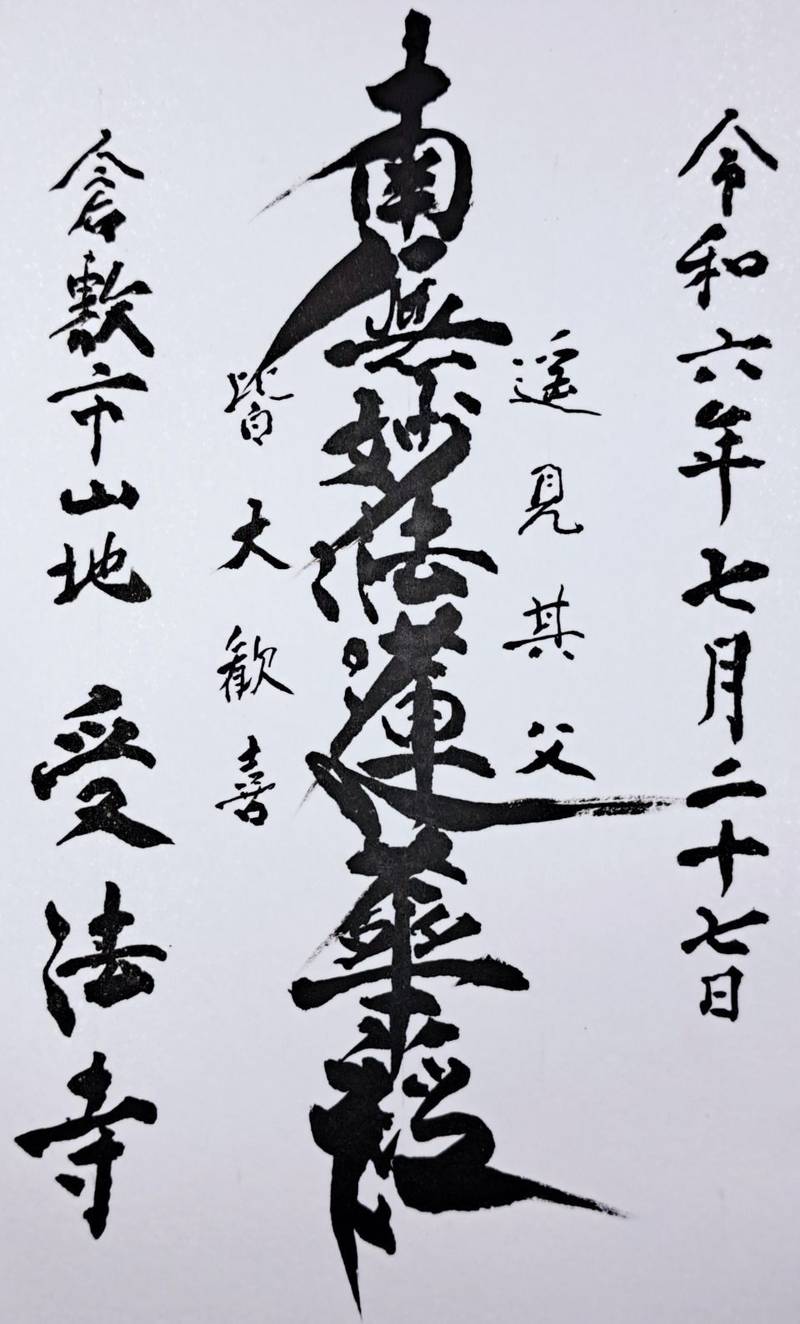 令和六年七月二十七日
遥見其父
南無妙法蓮華経
皆大歓喜
倉敷市山地 受法寺